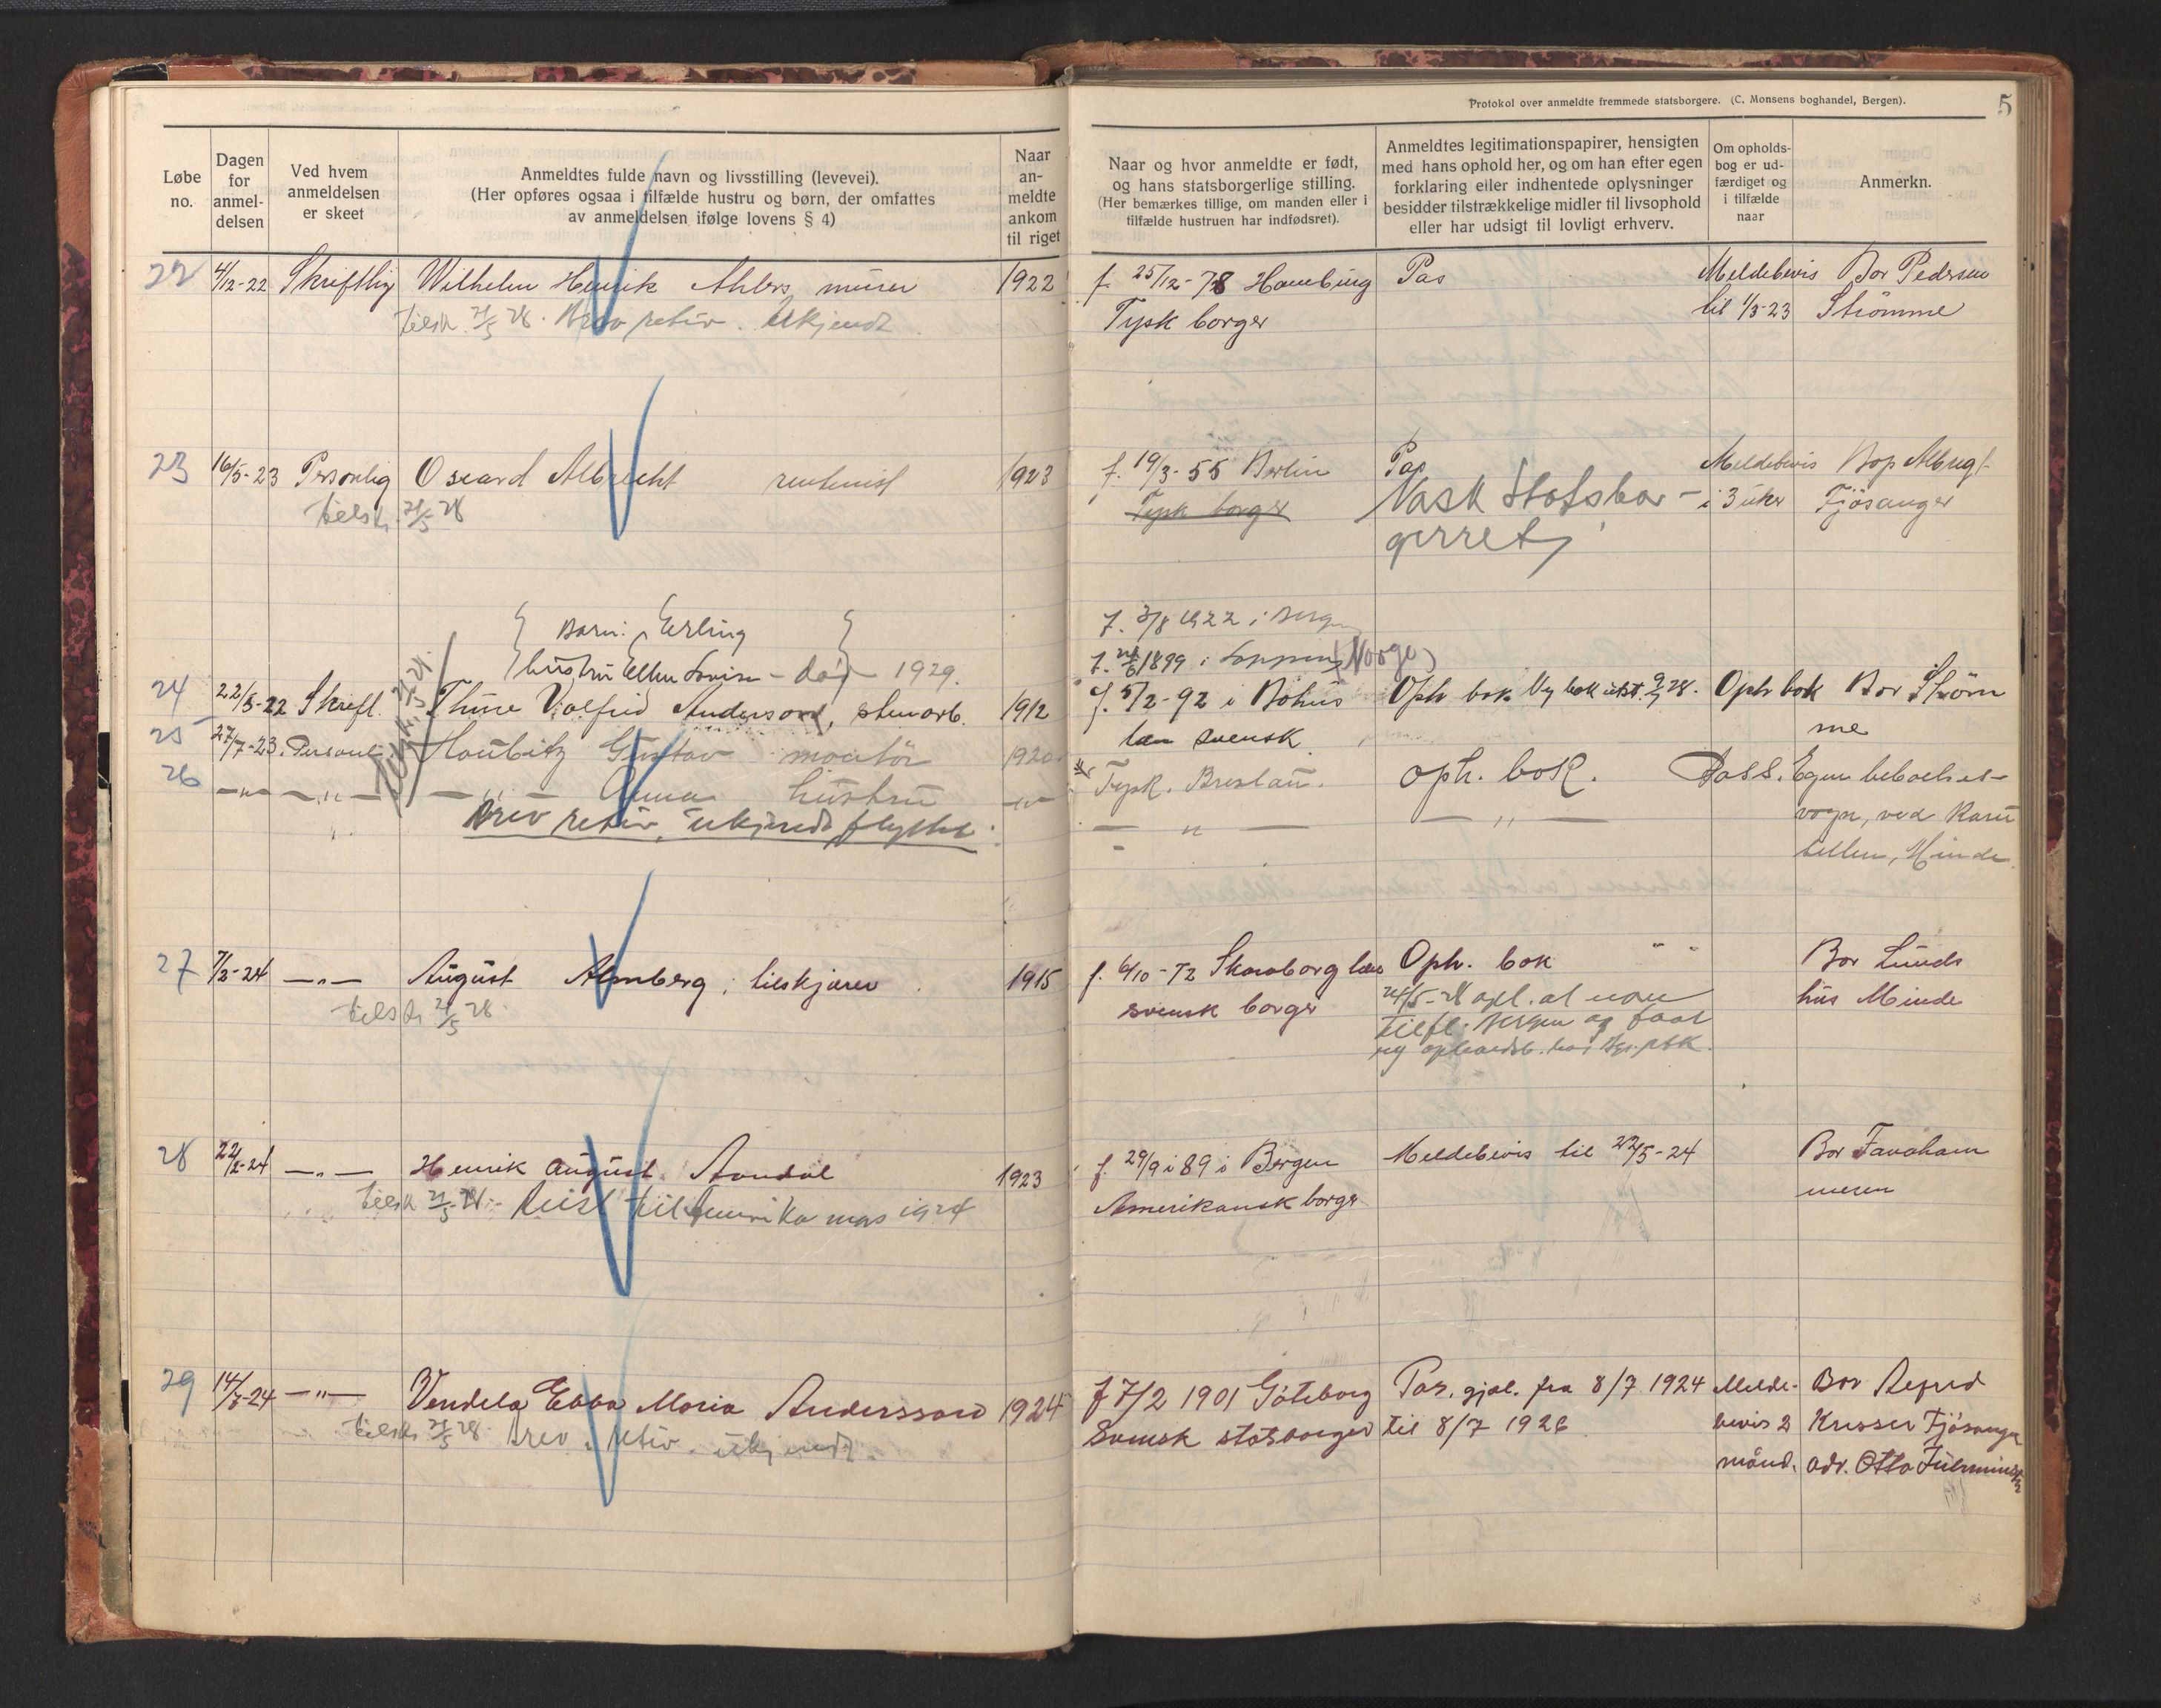 Protokol over anmeldte fremmede statsborgere. (C. Monsens boghandel, Bergen).
5
Løbe no.
Dagen for anmel- delsen
Ved hvem anmeldelsen er skeet
Anmeldtes fulde navn og livsstilling (levevei).
(Her opføres ogsaa i tilfælde hustru og børn, der omfattes
av anmeldelsen ifølge lovens § 4)
Naar an- meldte ankom til riget
Naar og hvor anmeldte er født,
og hans statsborgerlige stilling.
(Her bemærkes tillige, om manden eller i
tilfælde hustruen har indfødsret).
Anmeldtes legitimationspapirer, hensigten
med hans ophold her, og om han efter egen
forklaring eller indhentede oplysninger
besidder tilstrækkelige midler til livsophold
eller har udsigt til lovligt erhverv.
Om opholds- bog er ud- færdiget og i tilfælde naar
Anmerkn.
22 4/12-22 Skriftlig Wilhelm Henrik Ahlers murer 1922 f. 25/12-78 Hamburg Pas Meldebevis Bor Pedersen
tilsk. 21/5 28. Brev retur. Ukjendt Tysk borger til 1/3-23 Strømme
23 16/5-23 Personlig Oscard Albrecht rentenist 1923 f. 19/3-55 Berlin Pas Meldebevis
tilsk. 21/5 28 Tysk borger Norsk Statsbor- i 3 uker Fjøsanger
gerret
Barn: Erling f. 3/8 1922 i Bergen
hustru Ellen Lovise - død 1929. 1899 i Loppen (Norge)
24 22/5-22 Skrefl. Thure Valfrid Anderson, stenarb. 1912 f. 5/2-92 i Bohus Oph bok Ny bok utst. 28. Oph bok Bor Strøm
len svensk me
25 27/7-23. Personl. Haubitz Gustav montør 1920. Tysk. Breslau. oph. bok. Pass. Egen beboelses-
26 — „ — — „ — — „ — Anna hustru — „ — — „ — — „ — vogn, ved Karu
Brev retur, ukjendt flyttet. sellen, Minde.
27 7/2-24 — „ — August Almberg, tilskjærer 1915 f. 6/10-72 Skaraborg len Oph. bok Bor Lunds
tilsk 21/5 28. svensk borger 24/5-28 opl. at være hus Minde
tilfl. Bergen og faat
ny opholdsb. hos
28 22/2-24 — „ — Henrik August Aandal 1923 f. 29/9 i 89 i Bergen Meldebevis til 22/5-24 Bor Fanaham
tilsk 21/5 28. Reist til Amerika mars 1924 Amerikansk borger meren
29 14/7-24 — „ — Vendela Ebba Maria Andersson 1924 f 7/2 1901 Göteborg Pas. gjæl. fra 8/7 1924 Melde- Bor
tilsk 21/5 28. Brev retur. ukjendt. Svensk statsborger til 8/7 1926 bevis 2 Fjøsanger
månd. adr. Otto